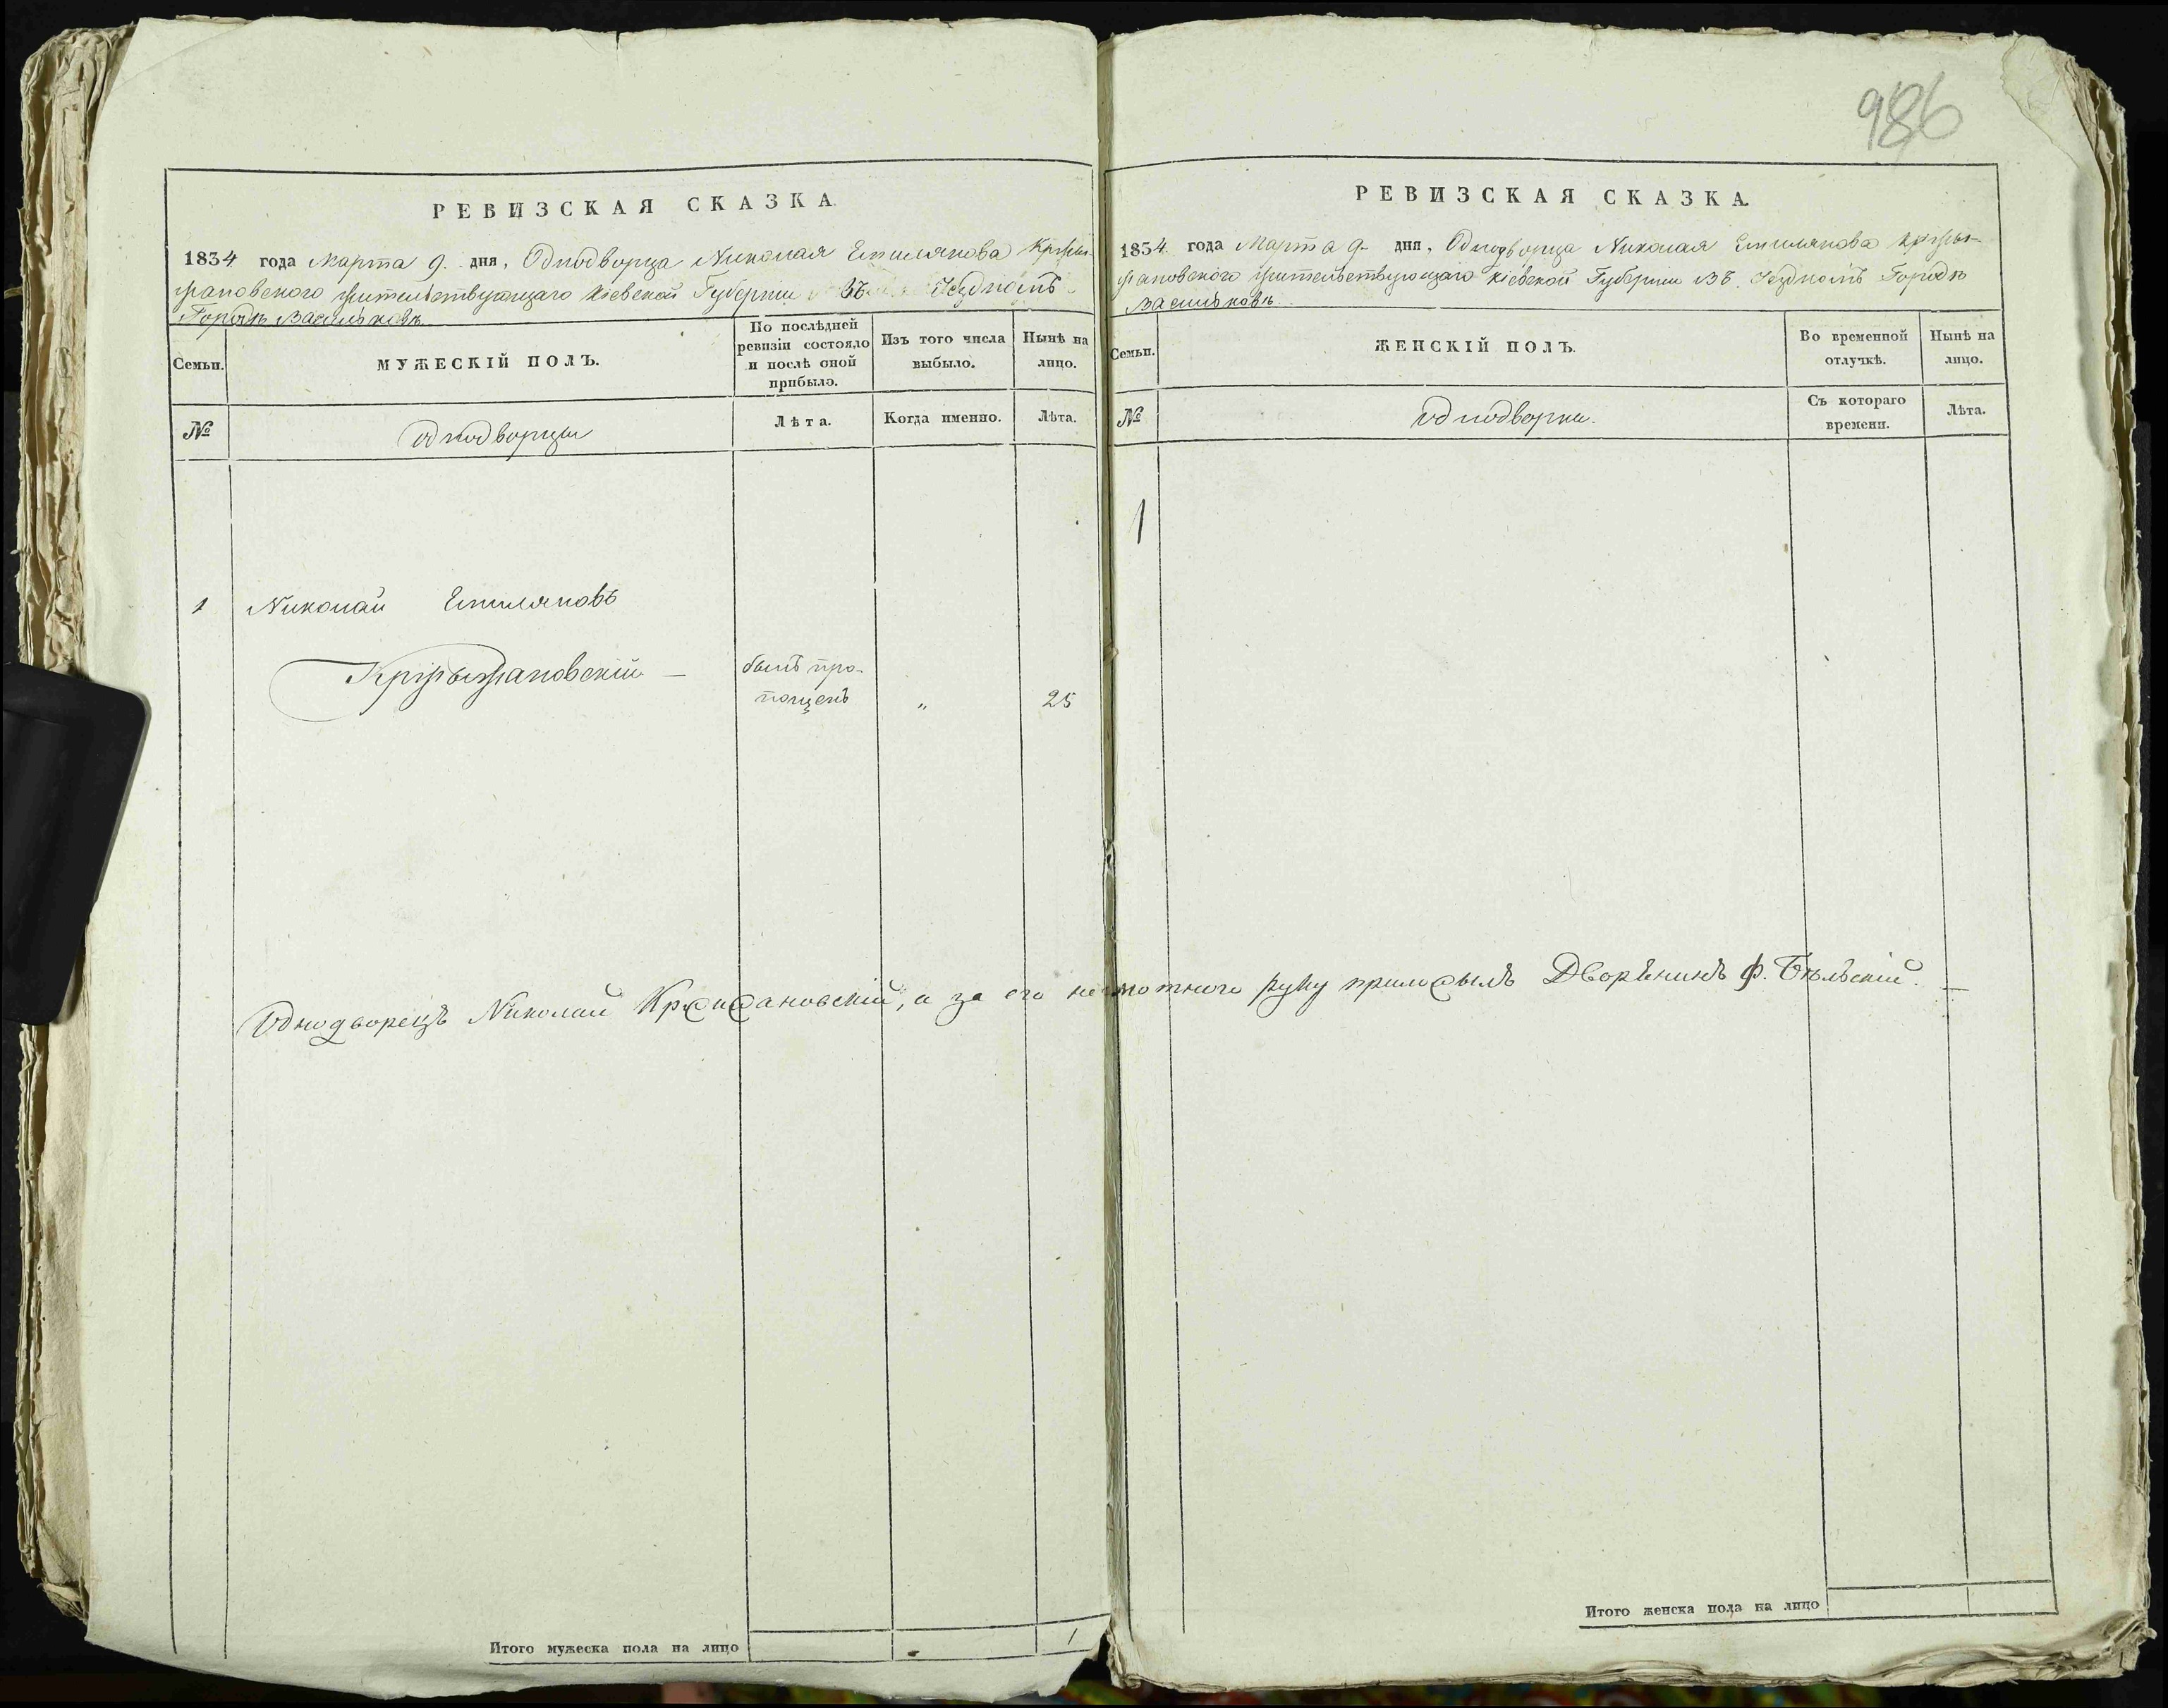 986
РЕВИЗСКАЯ СКАЗКА.
1834 года Марта 9. дня, Однодворца Николая Емилянова Кржы-
жановского жительствующаго Кіевской Губерніи въ Уѣдномъ
Городѣ Васильковѣ.
Семьи.
МУЖЕСКІЙ ПОЛЪ.
По послѣдней
ревизіи состояло
и послѣ оной
прибыло.
Изъ того числа
выбыло.
Нынѣ на
лицо.
№
однодворцы
Лѣта.
Когда именно.
Лѣта.
1 Николай Емиляновъ
Кржыжановскій — былъ про-
пощенъ „ 25
Однодворецъ Николай Кржижановскій, а за его негмотного руку приложылъ Дворѣнинъ Ф. Бѣльскій. —
Итого мужеска пола на лицо 1
РЕВИЗСКАЯ СКАЗКА.
1834 года Марта 9- дня, Однодворца Николая Емилянова Кржы-
жановского жительствующаго Кіевской Губерніи въ Уѣдномъ Городѣ
Васильковѣ.
Семьи.
ЖЕНСКІЙ ПОЛЪ.
Во временной
отлучкѣ.
Нынѣ на
лицо.
№
однодворки.
Съ котораго
времени.
Лѣта.
1
Итого женска пола на лицо